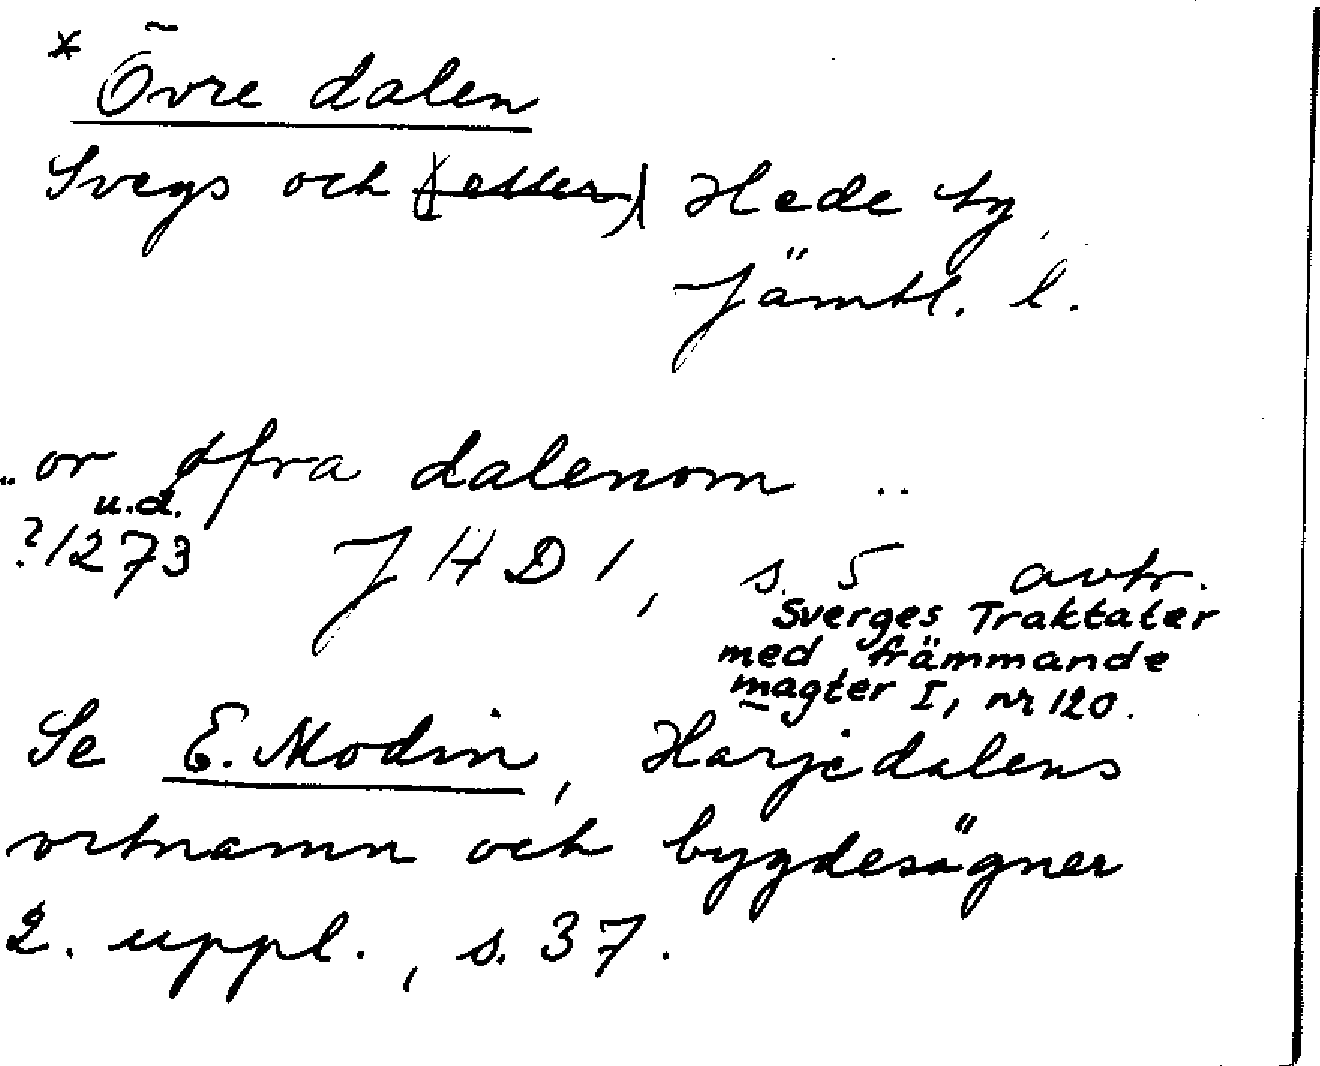 * Övre dalen
Svegs och (eller) Hede tg,
Jämtl. l.
.. or øfra dalenom ..
u.d.
?1273 JHD 1, s. 5 avtr.
Sverges Traktater
med främmande
magter I, nr 120.
Se E. Modin, Harjedalens
ortnamn och bygdesägner
2. uppl., s. 37.